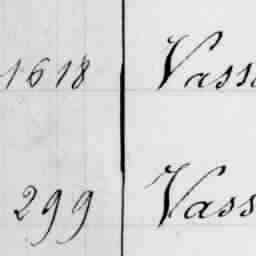 1618 Vass
299 Vass